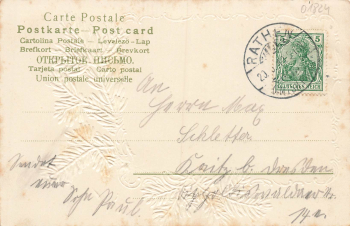 Carte Postale
Postkarte - Post card
Cartolina Postale - Levelező-Lap
Brefkort - Briefkaart - Brevkort
ОТКРЫТОЕ ПИСЬМО.
Tarjeta postal - Carto postal
Union postale universelle
RATHEN
5
DEUTSCHES REICH
An
Herrn Max
Schletter
Kaitz b. Dresden
Sendet
euer Sohn Paul